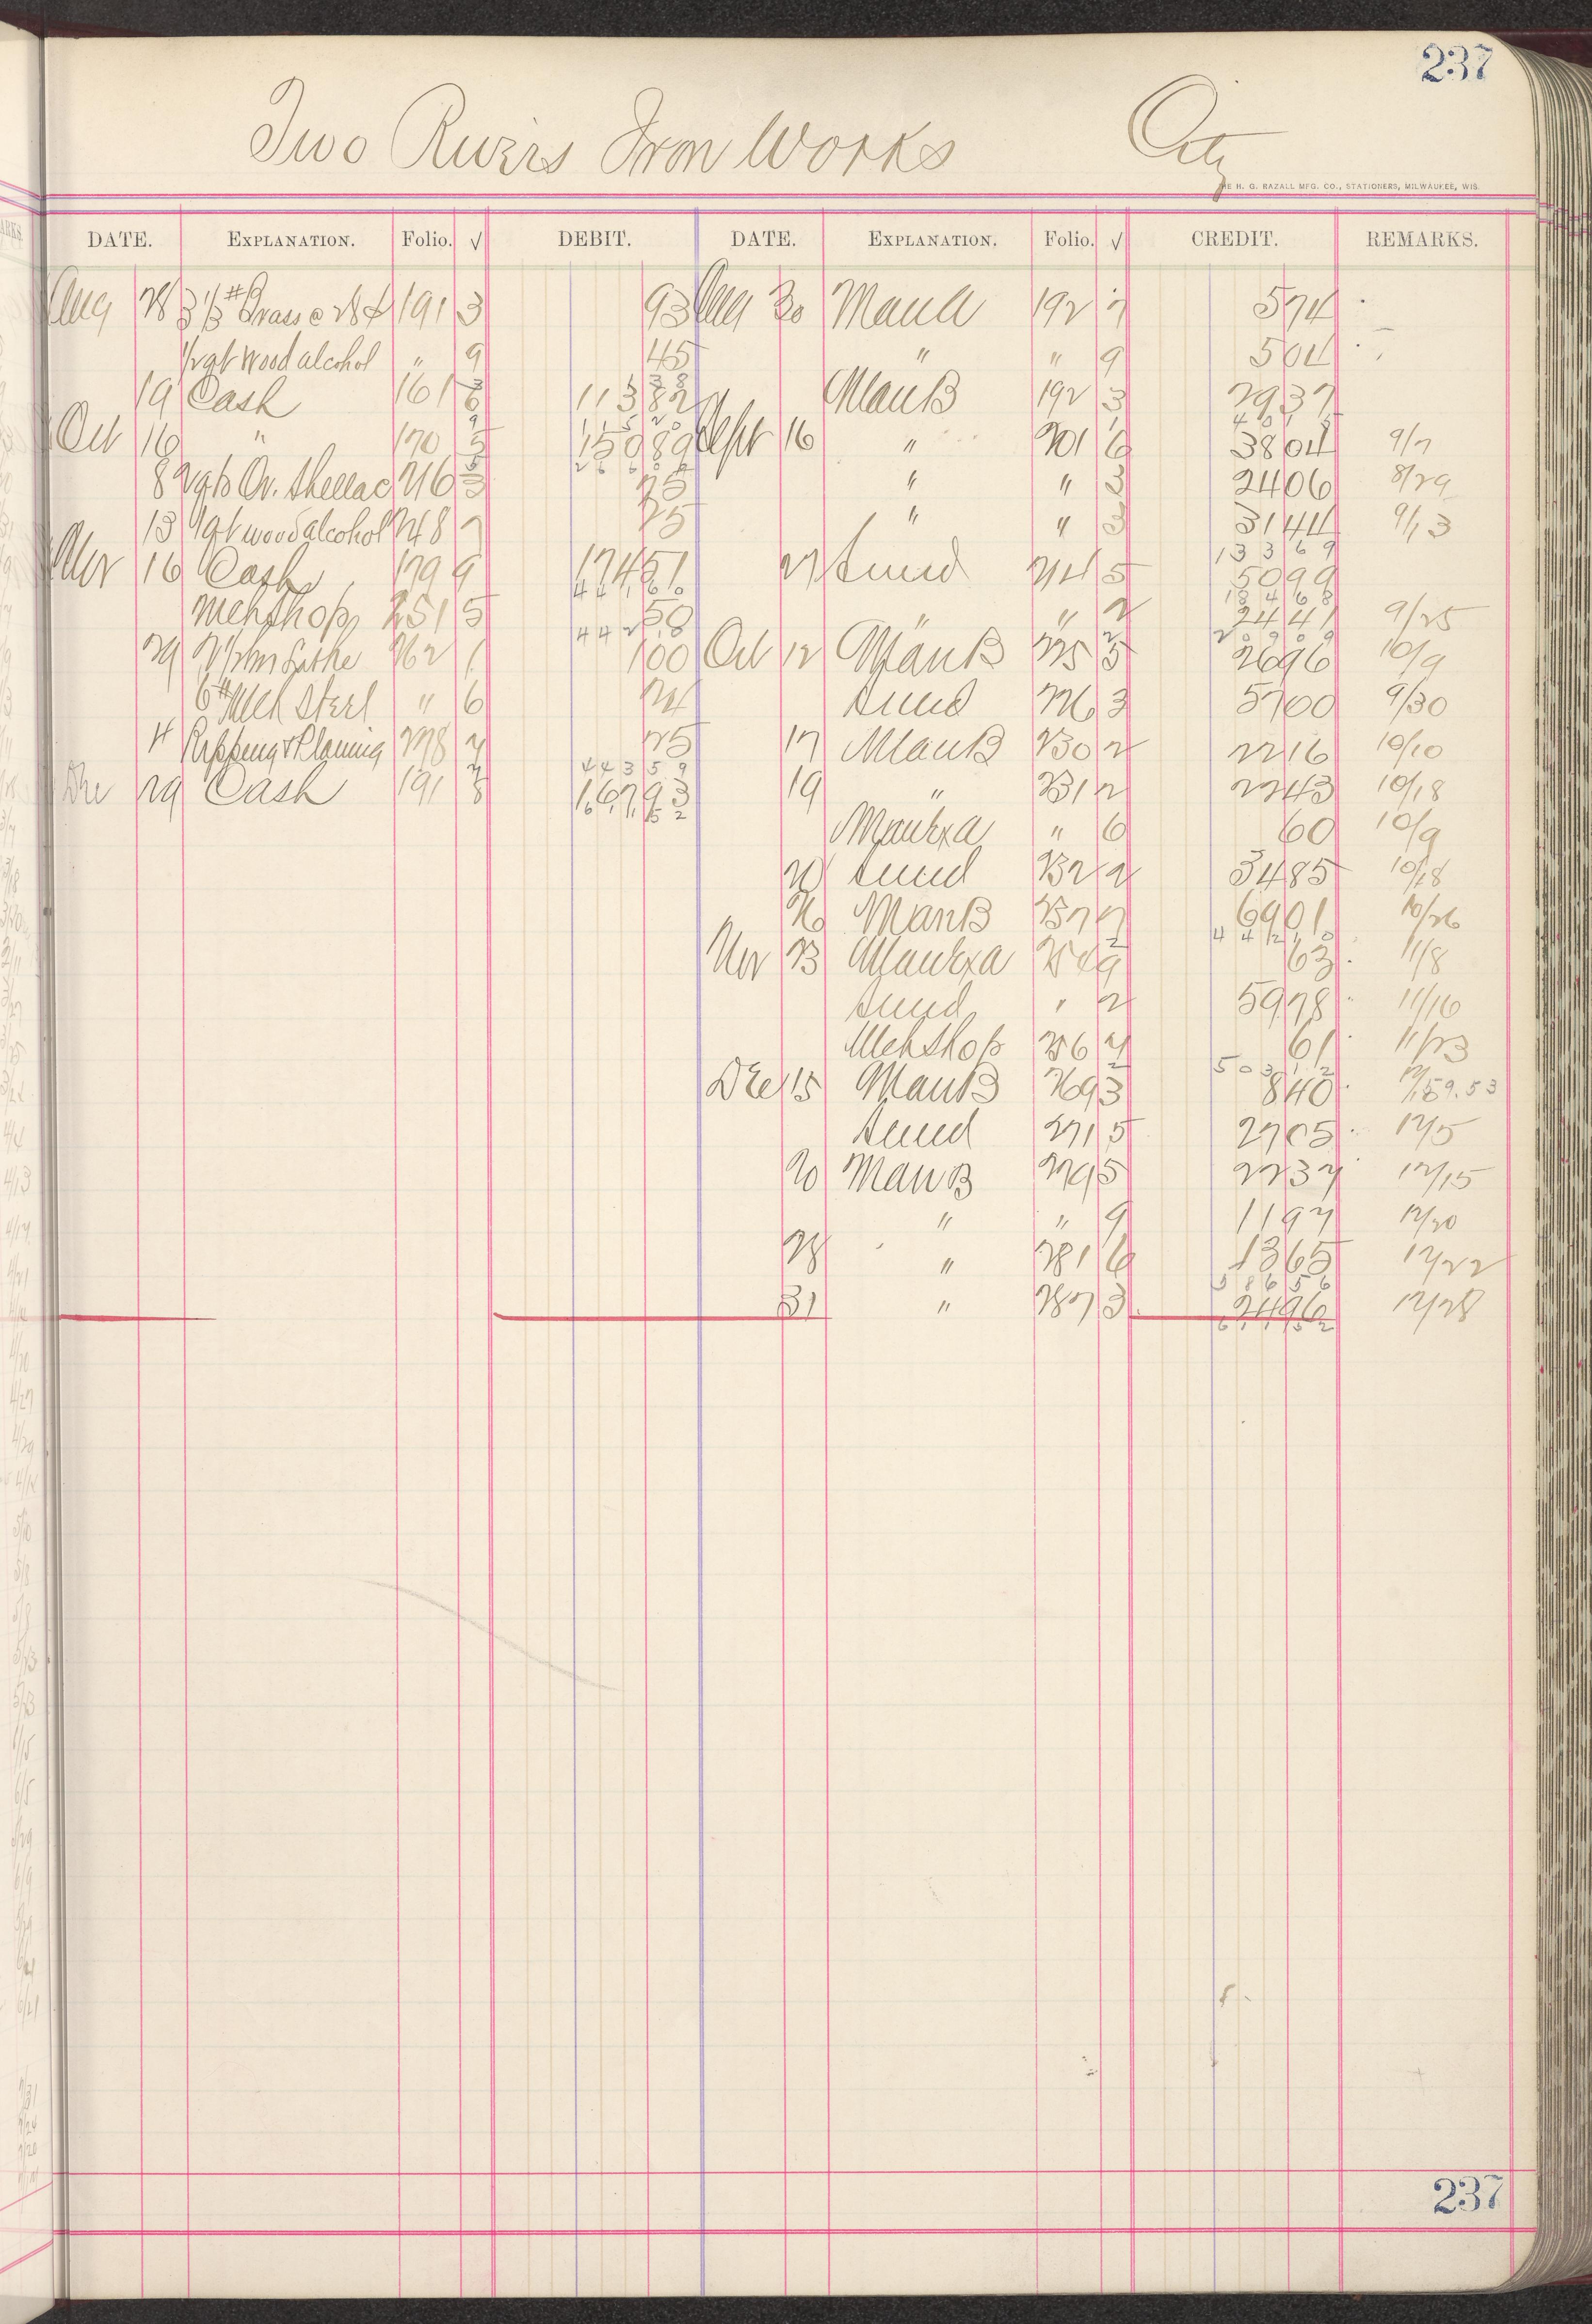 237
Two Rivers Iron Works City
THE H. G. RAZALL MFG. CO., STATIONERS, MILWAUKEE, WIS.
DATE. EXPLANATION. Folio. √ DEBIT. DATE. EXPLANATION. Folio. √ CREDIT. REMARKS.
Aug 28 3 1/3 # Brass c 28 191 3 93 Aug 30 Mana 192 7 574
1 qt wood alcohol " 9 45 " " 9 504
19 Cash 161 8 11382 Man B 192 3 2937
Oct 16 " 170 15089 Sept 16 " 201 6 3804 9/7
8 2 qts Or. Shellac 216 75 " " 3 2406 8/29
13 1 qt wood alcohol 248 25 " " 3 3144 9/13
13369
Nov 16 Cash 179 9 17451 27 Sund 214 5 5099
Mch Shop 251 5 50 " " 2 2441 9/25
29 Lathe 262 1 100 Oct 12 Man B 225 3 2696 10/9
6 # Mch Steel " 6 24 Sund 226 3 5700 9/30
4 Ripping & Planing 278 75 17 Man B 230 2 2216 10/10
44359
Dec 29 Cash 191 8 16793 19 " 231 2 2243 10/18
Man Exa " 6 60 10/9
Sund 232 2 3485 10/18
26 Man B 237 6901 10/26
Nov 13 Man Exa 63 11/8
Sund " 2 5978 11/16
Mch Shop 256 61 11/23
Dec 15 Man B 269 3 840 59.53
Sund 271 5 2705 12/5
20 Man B 279 5 2237 12/15
" " 9 1197 12/20
28 " 281 6 1365 12/22
58656
31 " 287 3 2496 12/28
237